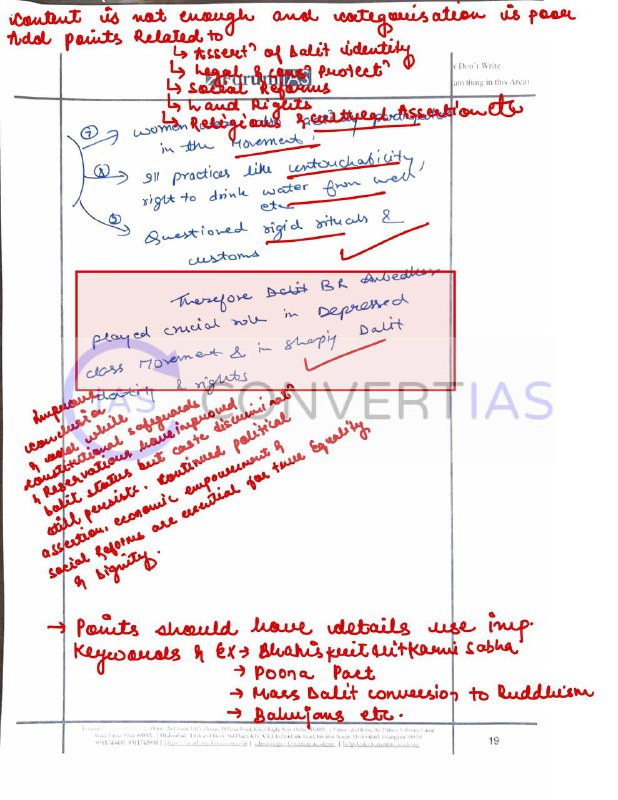 Content is not enough and categorisation is poor
Add points Related to
↳ Assertn of Dalit identity
↳ Legal & cons Protectn
ForumIAS
(Don't Write
anything in this Area)
↳ Social Reforms
↳ Land Rights
↳ Religious & cultural Assertion etc
⑦ → women
in the Movement,
⑧ → ill practices like untouchability,
right to drink water from well,
etc
⑨ → Questioned rigid rituals &
customs
Therefore Dalit BR Ambedkar
played crucial role in Depressed
class Movement & in shaping Dalit
identity & rights
CONVERTIAS
Improve
conclusion
& add while
constitutional safeguards
& Reservations have improved
Dalit status but caste discriminatn
still persists. Continued political
assertion, economic empowerment &
social Reforms are essential for true Equality
& Dignity.
→ Points should have details use imp.
Keywords & Ex → Bhahiskrit Hitkarni Sabha
→ Poona Pact
→ Mass Dalit conversion to Buddhism
→ Bahujans etc.
19